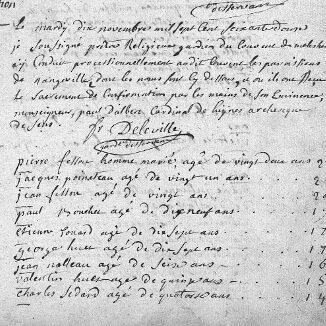 Le mardy dix novembre mil sept Cent Soixante douze
je Soussigné prêtre Religieux gardien du Couvent de
ay Conduit processionnellement audit Couvent les paroissiens
de Rangeville dont les noms sont cy dessous, où ils ont Reçu
le Sacrement de Confirmation par les mains de Son Eminence
monseigneur, paul d'albert Cardinal de Luynes archeveque
de Sens.
fr Deleville
pierre fessou homme marié agé de vingt deux ans 2
jacques poineleau agé de vingt un ans 2
jean fessou agé de vingt ans 20
paul agé de dix neuf ans 1
etienne fouard agé de dix sept ans 17
george huet agé de dix sept ans 17
jean nolleau agé de seize ans 16
valentin huet agé de quinze ans 15
charles Sedard agé de quatorze ans 14